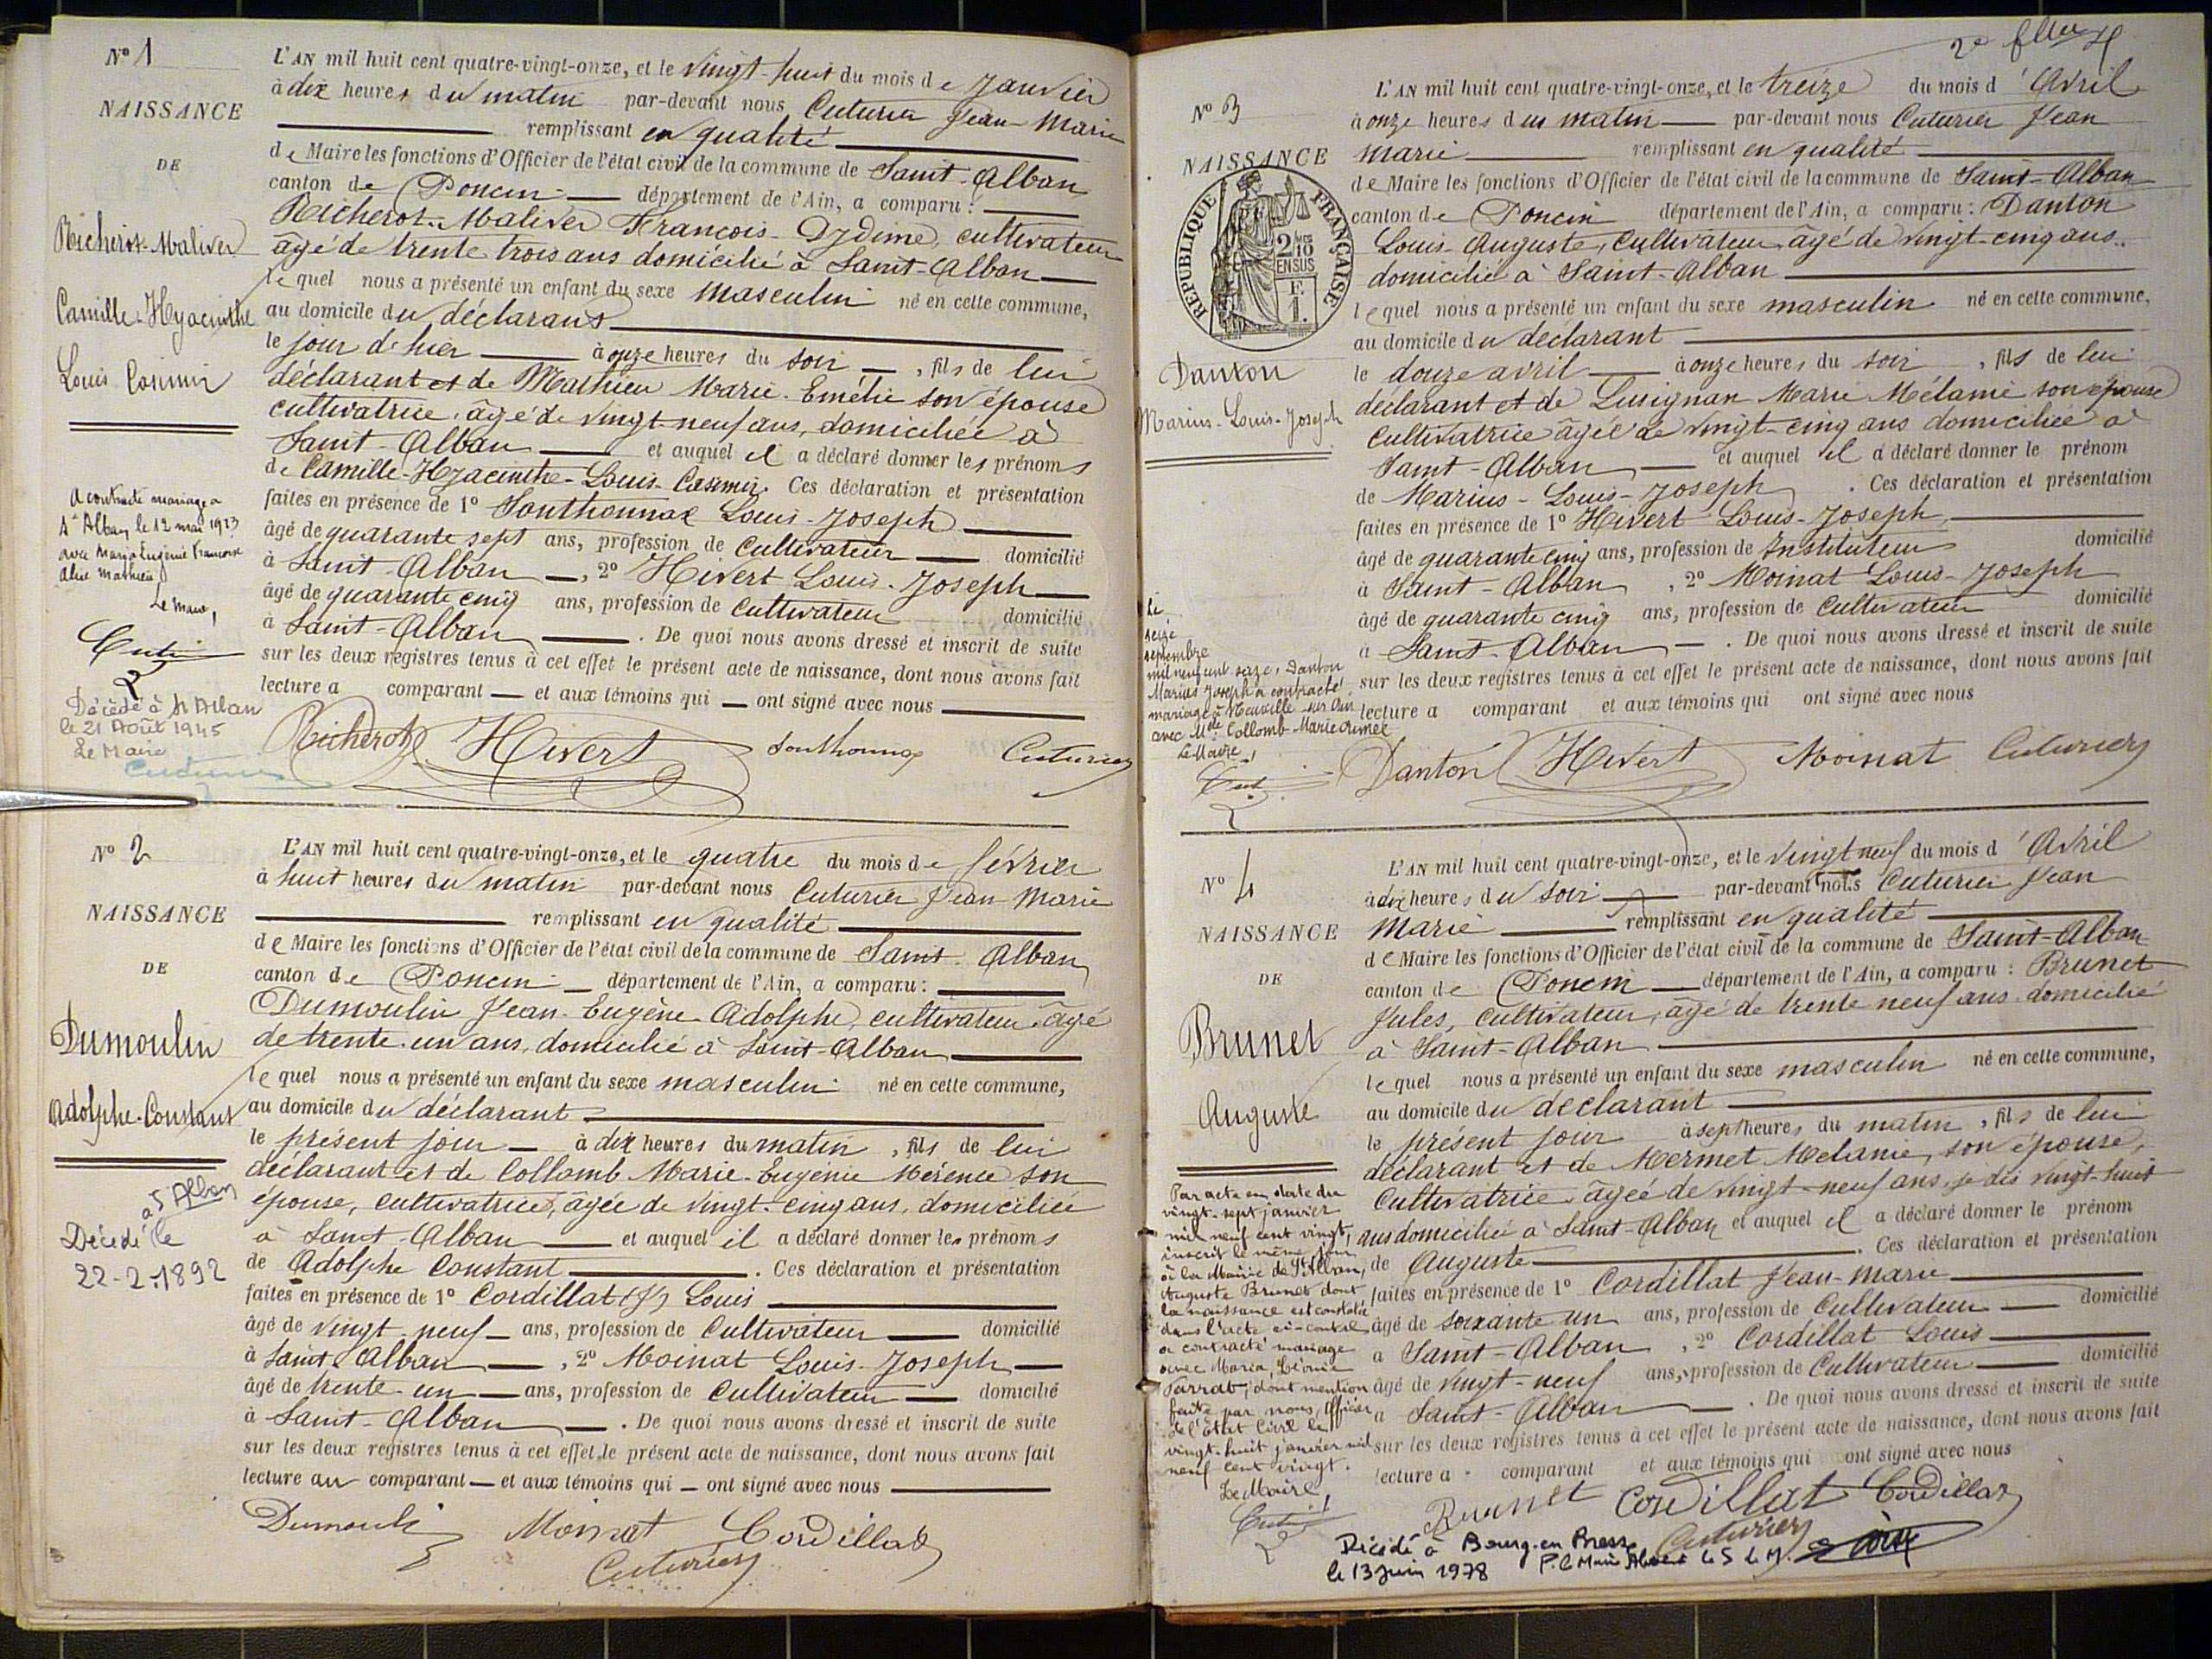 Nº 1
NAISSANCE
DE
Richerot-Maliver
Camille-Hyacinthe
Louis Casimir
A contracté mariage a
St Alban le 12 mai 1923
avec Marie Eugénie Francoise
Alice Mathieu
Le Maire,
Décédé à St Alban
le 21 Août 1945
Le Maire
L'AN mil huit cent quatre-vingt-onze, et le Vingt-huit du mois de Janvier
à dix heures du matin par-devant nous Cuturier Jean-Marie
remplissant en qualité
de Maire les fonctions d'Officier de l'état civil de la commune de Saint-Alban
canton de Poncin département de l'Ain, a comparu :
Richerot-Maliver François-Dydime, cultivateur
âgé de trente trois ans domicilié à Saint-Alban
lequel nous a présenté un enfant du sexe masculin né en cette commune,
au domicile du déclarant
le jour d'hier à onze heures du soir, fils de lui
déclarant et de Mathieu Marie-Emélie son épouse
cultivatrice, âgé de vingt-neuf ans, domiciliée à
Saint-Alban et auquel il a déclaré donner les prénoms
de Camille-Hyacinthe-Louis-Casimir. Ces déclaration et présentation
faites en présence de 1º Southonnax Louis-Joseph
âgé de quarante sept ans, profession de Cultivateur domicilié
à Saint-Alban, 2º Hivert Louis-Joseph
âgé de quarante cinq ans, profession de Cultivateur domicilié
à Saint-Alban. De quoi nous avons dressé et inscrit de suite
sur les deux registres tenus à cet effet le présent acte de naissance, dont nous avons fait
lecture a comparant et aux témoins qui ont signé avec nous
Richerot Hivert Southonnax Cuturier
Nº 2
NAISSANCE
DE
Dumoulin
Adolphe-Constant
à St Alban
Décédé le
22-2-1892
L'AN mil huit cent quatre-vingt-onze, et le quatre du mois de février
à huit heures du matin par-devant nous Cuturier Jean-Marie
remplissant en qualité
de Maire les fonctions d'Officier de l'état civil de la commune de Saint-Alban
canton de Poncin département de l'Ain, a comparu :
Dumoulin Jean-Eugène Adolphe, cultivateur, âgé
de trente-un ans, domicilié à Saint-Alban
lequel nous a présenté un enfant du sexe masculin né en cette commune,
au domicile du déclarant
le présent jour à dix heures du matin, fils de lui
déclarant et de Collomb Marie-Eugénie Mérence son
épouse, cultivatrice, âgée de vingt-cinq ans, domiciliée
à Saint-Alban et auquel il a déclaré donner les prénoms
de Adolphe Constant. Ces déclaration et présentation
faites en présence de 1º Cordillat (J) Louis
âgé de vingt-neuf ans, profession de Cultivateur domicilié
à Saint-Alban, 2º Moinat Louis-Joseph
âgé de trente-un ans, profession de Cultivateur domicilié
à Saint-Alban. De quoi nous avons dressé et inscrit de suite
sur les deux registres tenus à cet effet le présent acte de naissance, dont nous avons fait
lecture au comparant et aux témoins qui ont signé avec nous
Dumoulin Moinat Cordillat
Cuturier
2e
Nº 3
NAISSANCE
REPUBLIQUE FRANÇAISE
2/10 EN SUS
F.
1.
Danton
Marius-Louis-Joseph
Le
seize
septembre
mil neuf cent seize, Danton
Marius Joseph a contracté
mariage à Neuville-sur-Ain
avec Mlle Collomb Marie Aimée
Le Maire,
L'AN mil huit cent quatre-vingt-onze, et le treize du mois d'Avril
à onze heures du matin par-devant nous Cuturier Jean
Marie remplissant en qualité
de Maire les fonctions d'Officier de l'état civil de la commune de Saint-Alban
canton de Poncin département de l'Ain, a comparu : Danton
Louis-Auguste, Cultivateur, âgé de vingt-cinq ans
domicilié à Saint-Alban
lequel nous a présenté un enfant du sexe masculin né en cette commune,
au domicile du déclarant
le douze avril à onze heures du soir, fils de lui
déclarant et de Lusignan Marie Mélanie son épouse
Cultivatrice âgée de vingt-cinq ans domiciliée à
Saint-Alban et auquel il a déclaré donner le prénom
de Marius-Louis-Joseph. Ces déclaration et présentation
faites en présence de 1º Hivert Louis-Joseph
âgé de quarante cinq ans, profession de Instituteur domicilié
à Saint-Alban, 2º Moinat Louis-Joseph
âgé de quarante cinq ans, profession de Cultivateur domicilié
à Saint-Alban. De quoi nous avons dressé et inscrit de suite
sur les deux registres tenus à cet effet le présent acte de naissance, dont nous avons fait
lecture a comparant et aux témoins qui ont signé avec nous
Danton Hivert Moinat Cuturier
Nº 4
NAISSANCE
DE
Brunet
Auguste
Par acte en date du
vingt-sept janvier
mil neuf cent vingt,
inscrit le même jour
à la Mairie de St Alban,
Auguste Brunet dont
la naissance est constatée
dans l'acte ci-contre
a contracté mariage
avec Maria Léonie
Parrat, dont mention
faite par nous, Officier
de l'Etat Civil le
vingt-huit janvier mil
neuf cent vingt.
Le Maire,
L'AN mil huit cent quatre-vingt-onze, et le vingt neuf du mois d'Avril
à dix heures du soir par-devant nous Cuturier Jean
Marie remplissant en qualité
de Maire les fonctions d'Officier de l'état civil de la commune de Saint-Alban
canton de Poncin département de l'Ain, a comparu : Brunet
Jules, Cultivateur, âgé de trente neuf ans domicilié
à Saint-Alban
lequel nous a présenté un enfant du sexe masculin né en cette commune,
au domicile du déclarant
le présent jour à sept heures du matin, fils de lui
déclarant et de Mermet Melanie, son épouse,
Cultivatrice, âgée de vingt-neuf ans, je dis vingt-huit
ans domiciliée à Saint-Alban et auquel il a déclaré donner le prénom
de Auguste. Ces déclaration et présentation
faites en présence de 1º Cordillat Jean-Marie
âgé de soixante un ans, profession de Cultivateur domicilié
à Saint-Alban, 2º Cordillat Louis
âgé de vingt-neuf ans, profession de Cultivateur domicilié
à Saint-Alban. De quoi nous avons dressé et inscrit de suite
sur les deux registres tenus à cet effet le présent acte de naissance, dont nous avons fait
lecture a comparant et aux témoins qui ont signé avec nous
Brunet Cordillat Cordillat
Cuturier
Décédé à Bourg-en-Bresse
le 13 Juin 1978